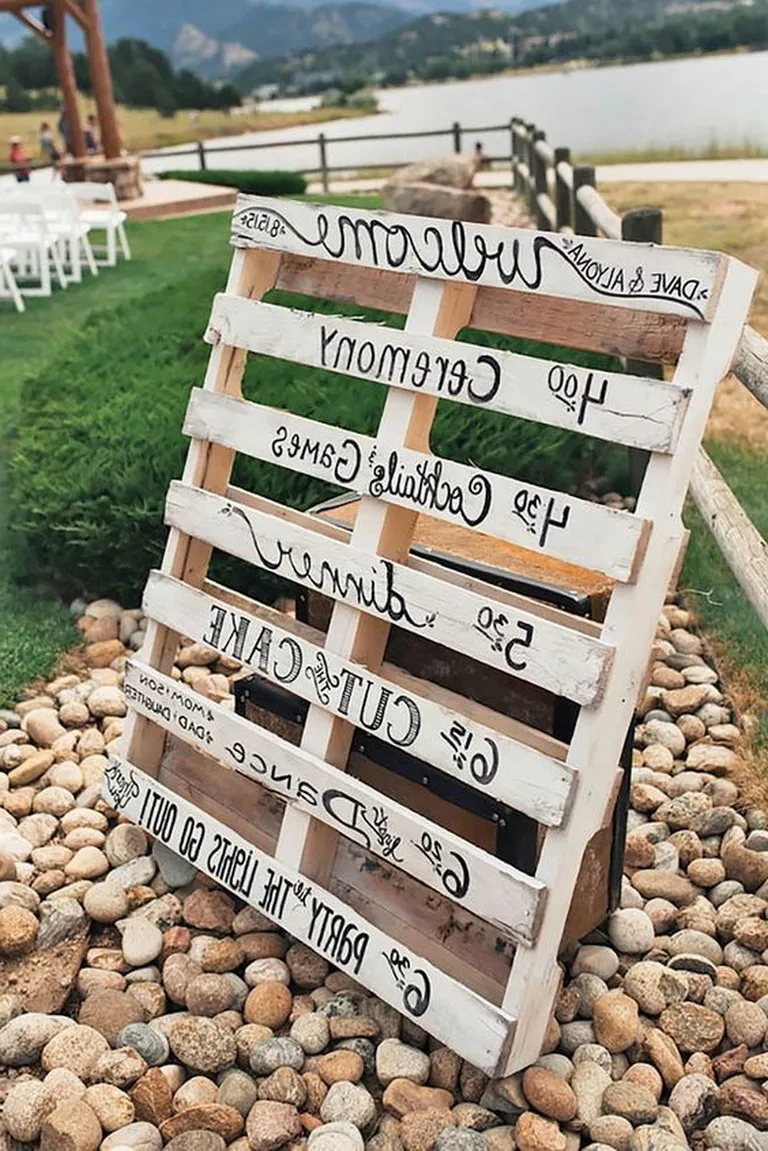 DAVE & ALYONA welcome *8.15.15*
4:00 Ceremony
4:30 Cocktails & Games
5:30 dinner
6:15 CUT THE CAKE
6:20 First Dance *MOM & SON *DAD & DAUGHTER
6:30 PARTY 'til THE LIGHTS GO OUT! Thank You